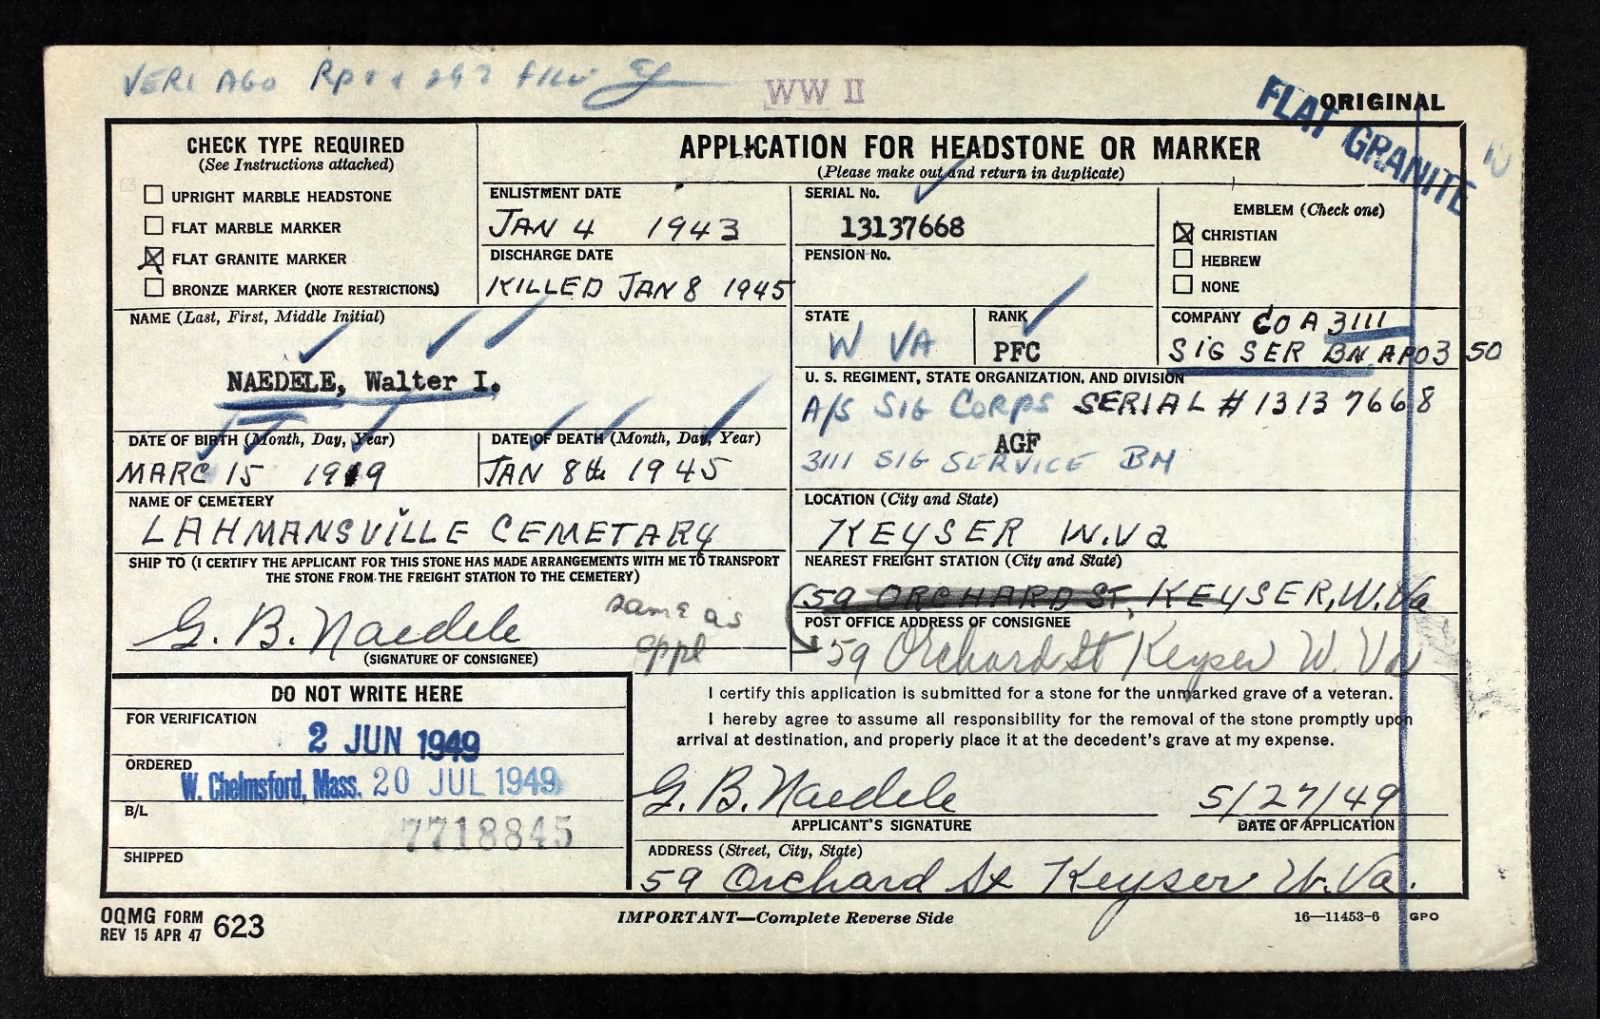 VERI AGO
WW II
ORIGINAL
FLAT GRANITE
CHECK TYPE REQUIRED
(See Instructions attached)
UPRIGHT MARBLE HEADSTONE
FLAT MARBLE MARKER
FLAT GRANITE MARKER
BRONZE MARKER (NOTE RESTRICTIONS)
APPLICATION FOR HEADSTONE OR MARKER
(Please make out and return in duplicate)
ENLISTMENT DATE
JAN 4 1943
SERIAL No.
13137668
EMBLEM (Check one)
CHRISTIAN
HEBREW
NONE
DISCHARGE DATE
KILLED JAN 8 1945
PENSION No.
NAME (Last, First, Middle Initial)
NAEDELE, Walter I.
STATE
W VA
RANK
PFC
COMPANY CO A 3111
SIG SER BN APO 350
U. S. REGIMENT, STATE ORGANIZATION, AND DIVISION
A/S SIG CORPS SERIAL # 13137668
AGF
3111 SIG SERVICE BN
DATE OF BIRTH (Month, Day, Year)
MARC 15 1919
DATE OF DEATH (Month, Day, Year)
JAN 8th 1945
NAME OF CEMETERY
LAHMANSVILLE CEMETARY
LOCATION (City and State)
KEYSER W.Va
SHIP TO (I CERTIFY THE APPLICANT FOR THIS STONE HAS MADE ARRANGEMENTS WITH ME TO TRANSPORT
THE STONE FROM THE FREIGHT STATION TO THE CEMETERY)
G. B. Naedele
same as
appl
(SIGNATURE OF CONSIGNEE)
NEAREST FREIGHT STATION (City and State)
59 ORCHARD ST, KEYSER, W.Va
POST OFFICE ADDRESS OF CONSIGNEE
59 Orchard St Keyser W. Va
DO NOT WRITE HERE
FOR VERIFICATION
2 JUN 1949
ORDERED
W. Chelmsford, Mass. 20 JUL 1949
B/L
7718845
SHIPPED
I certify this application is submitted for a stone for the unmarked grave of a veteran.
I hereby agree to assume all responsibility for the removal of the stone promptly upon
arrival at destination, and properly place it at the decedent's grave at my expense.
G. B. Naedele
5/27/49
APPLICANT'S SIGNATURE
DATE OF APPLICATION
ADDRESS (Street, City, State)
59 Orchard St Keyser W. Va.
OQMG FORM 623
REV 15 APR 47
IMPORTANT—Complete Reverse Side
16—11453-6 GPO